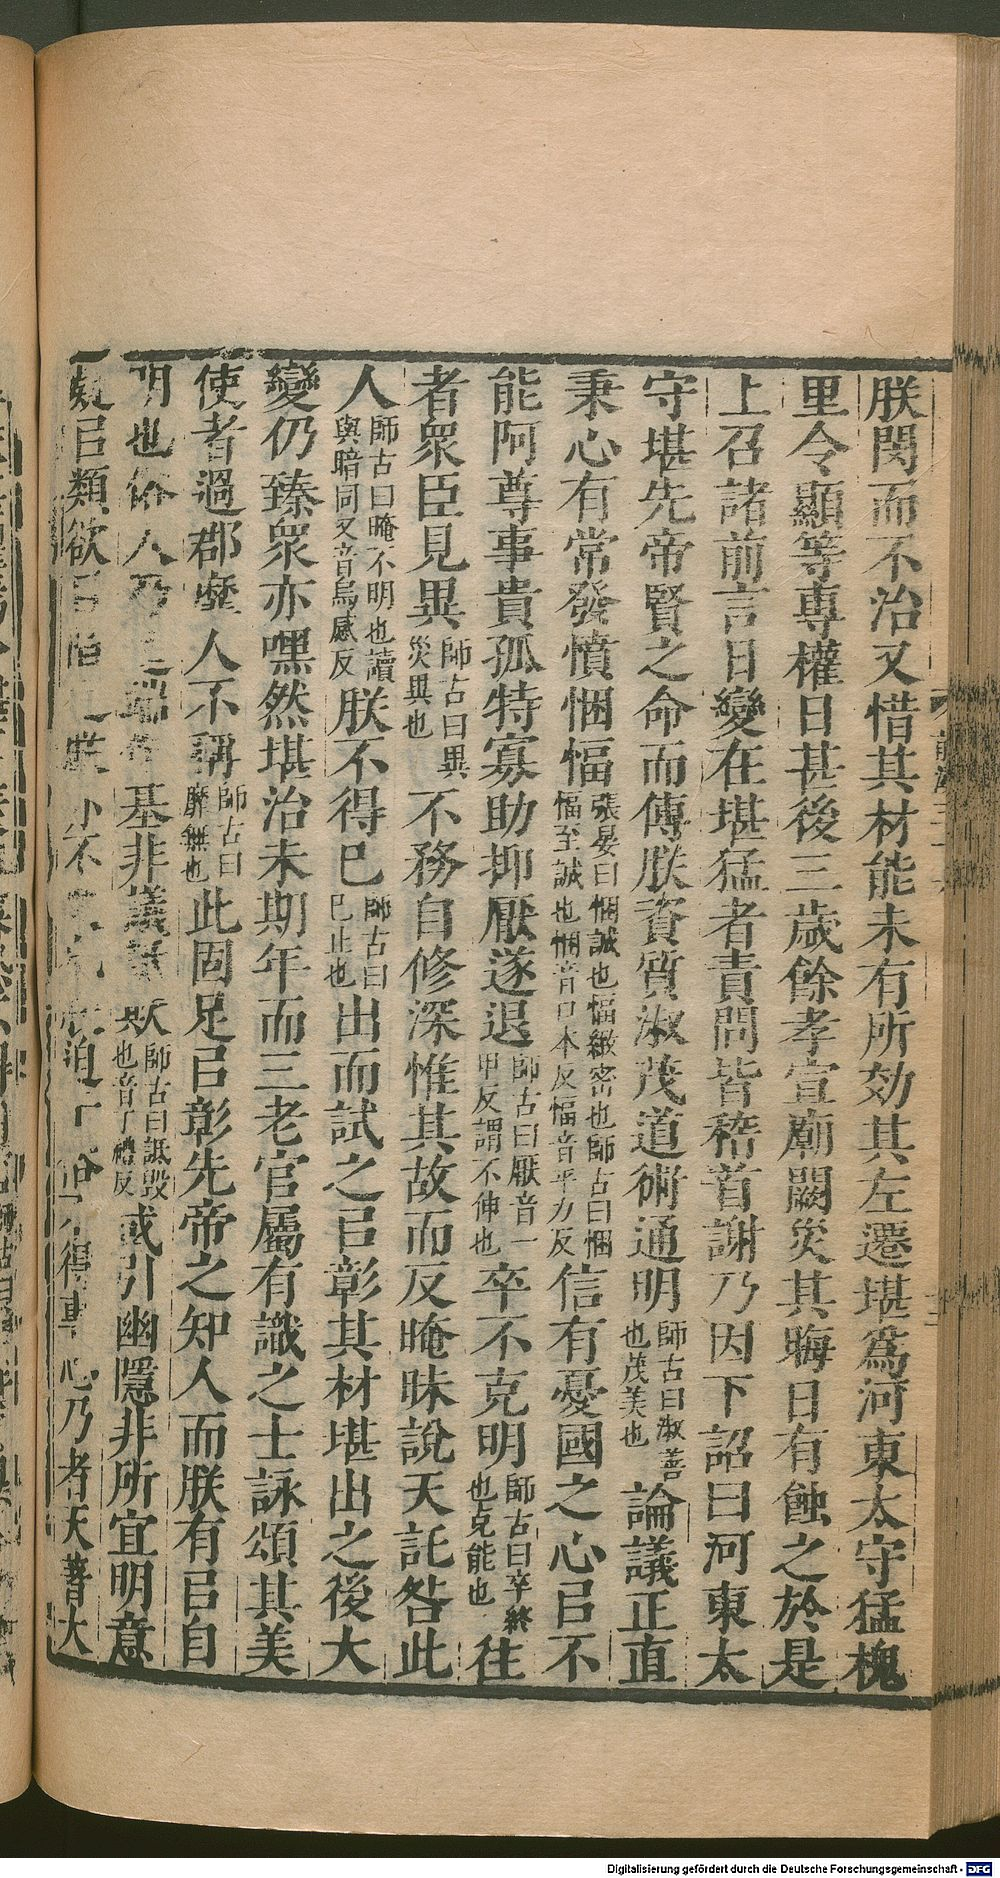 朕閔而不治又惜其材能未有所効其左遷堪爲河東太守猛槐
里令顯等專權日甚後三歲餘孝宣廟闕災其晦日有蝕之於是
上召諸前言日變在堪猛者責問皆稽首謝乃因下詔曰河東太
守堪先帝賢之命而傅朕資質淑茂道術通明師古曰淑善也茂美也論議正直
秉心有常發憤悃愊張晏曰悃誠也愊緻密也師古曰悃愊至誠也悃音口本反愊音平力反信有憂國之心㠯不
能阿尊事貴孤特寡助抑厭遂退師古曰厭音一甲反謂不伸也卒不克明師古曰卒終也克能也往
者衆臣見異師古曰異災異也不務自修深惟其故而反晻昧說天託咎此
人師古曰晻不明也讀與暗同又音烏感反朕不得已師古曰已止也出而試之㠯彰其材堪出之後大
變仍臻衆亦嘿然堪治未期年而三老官屬有識之士詠頌其美
使者過郡靡人不稱師古曰靡無也此固足㠯彰先帝之知人而朕有㠯自
明也俗人乃 端作基非議詆欺師古曰詆毀也音丁禮反或引幽隱非所宜明意
疑㠯類欲 朕亦不 迫于俗不得專心乃者天著大
Digitalisierung gefördert durch die Deutsche Forschungsgemeinschaft - DFG